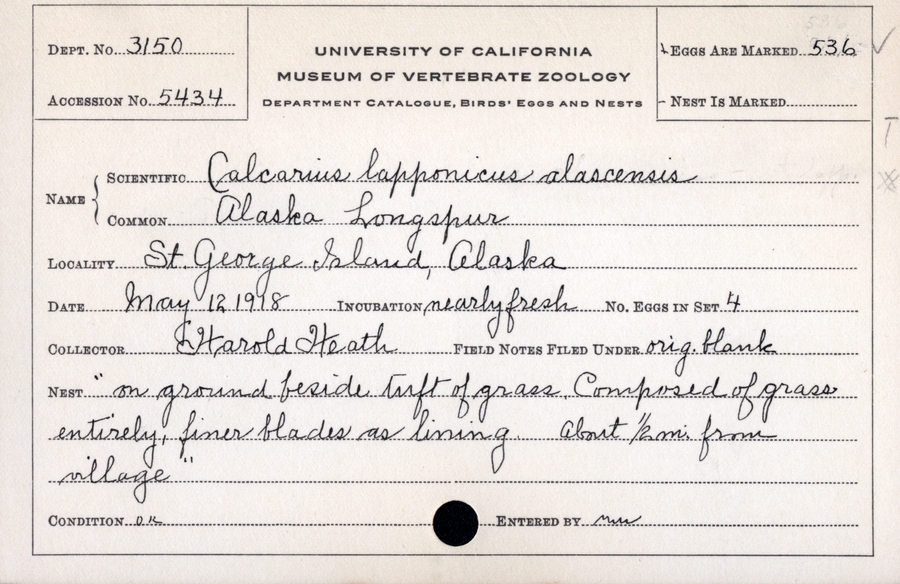 DEPT. NO. 3150
UNIVERSITY OF CALIFORNIA
MUSEUM OF VERTEBRATE ZOOLOGY
DEPARTMENT CATALOGUE, BIRDS' EGGS AND NESTS
EGGS ARE MARKED 536
ACCESSION NO. 5434
NEST IS MARKED
NAME { SCIENTIFIC Calcarius lapponicus alascensis
COMMON Alaska Longspur
LOCALITY St. George Island, Alaska
DATE May 12 1918 INCUBATION nearly fresh NO. EGGS IN SET 4
COLLECTOR Harold Heath FIELD NOTES FILED UNDER orig. blank
NEST "on ground beside tuft of grass. Composed of grass
entirely, finer blades as lining About 1/2 mi. from
village"
CONDITION OK ENTERED BY